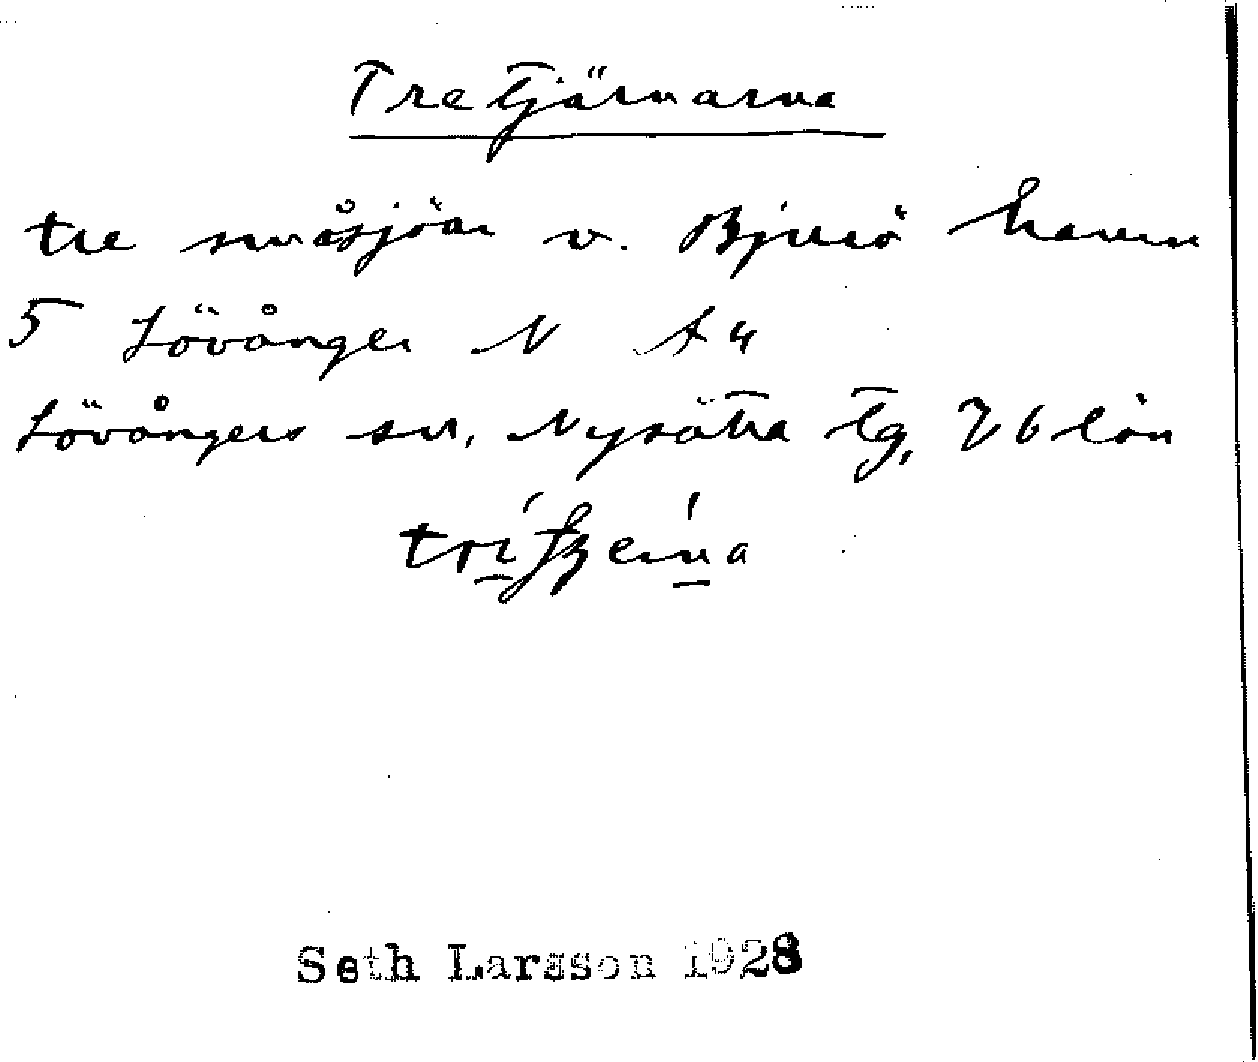 Tretjärnarna
tre småsjöar v. Bjurö hamn
5 Lövånger N A4
Lövångers sn, Nysätra tg, Vb län
Seth Larsson 1928